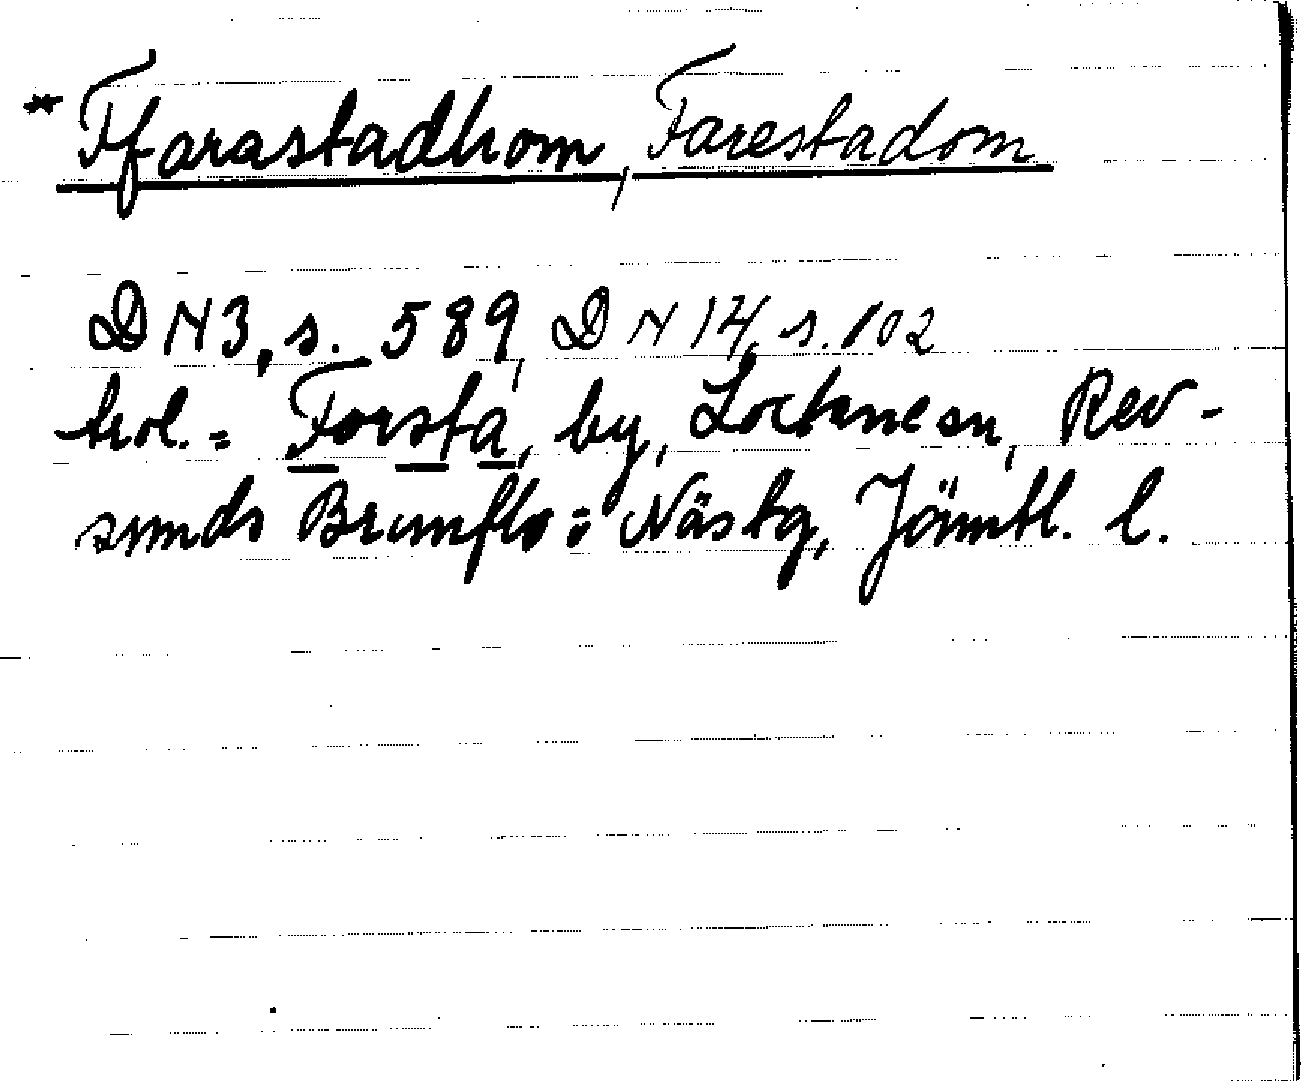 * Ffarastadhom, Farestadom
DN3, s. 589, DN 14, s. 102
trol. = Forsta, by, Lockne sn, Rev-
sunds Brunflo = Näs tg, Jämtl. l.